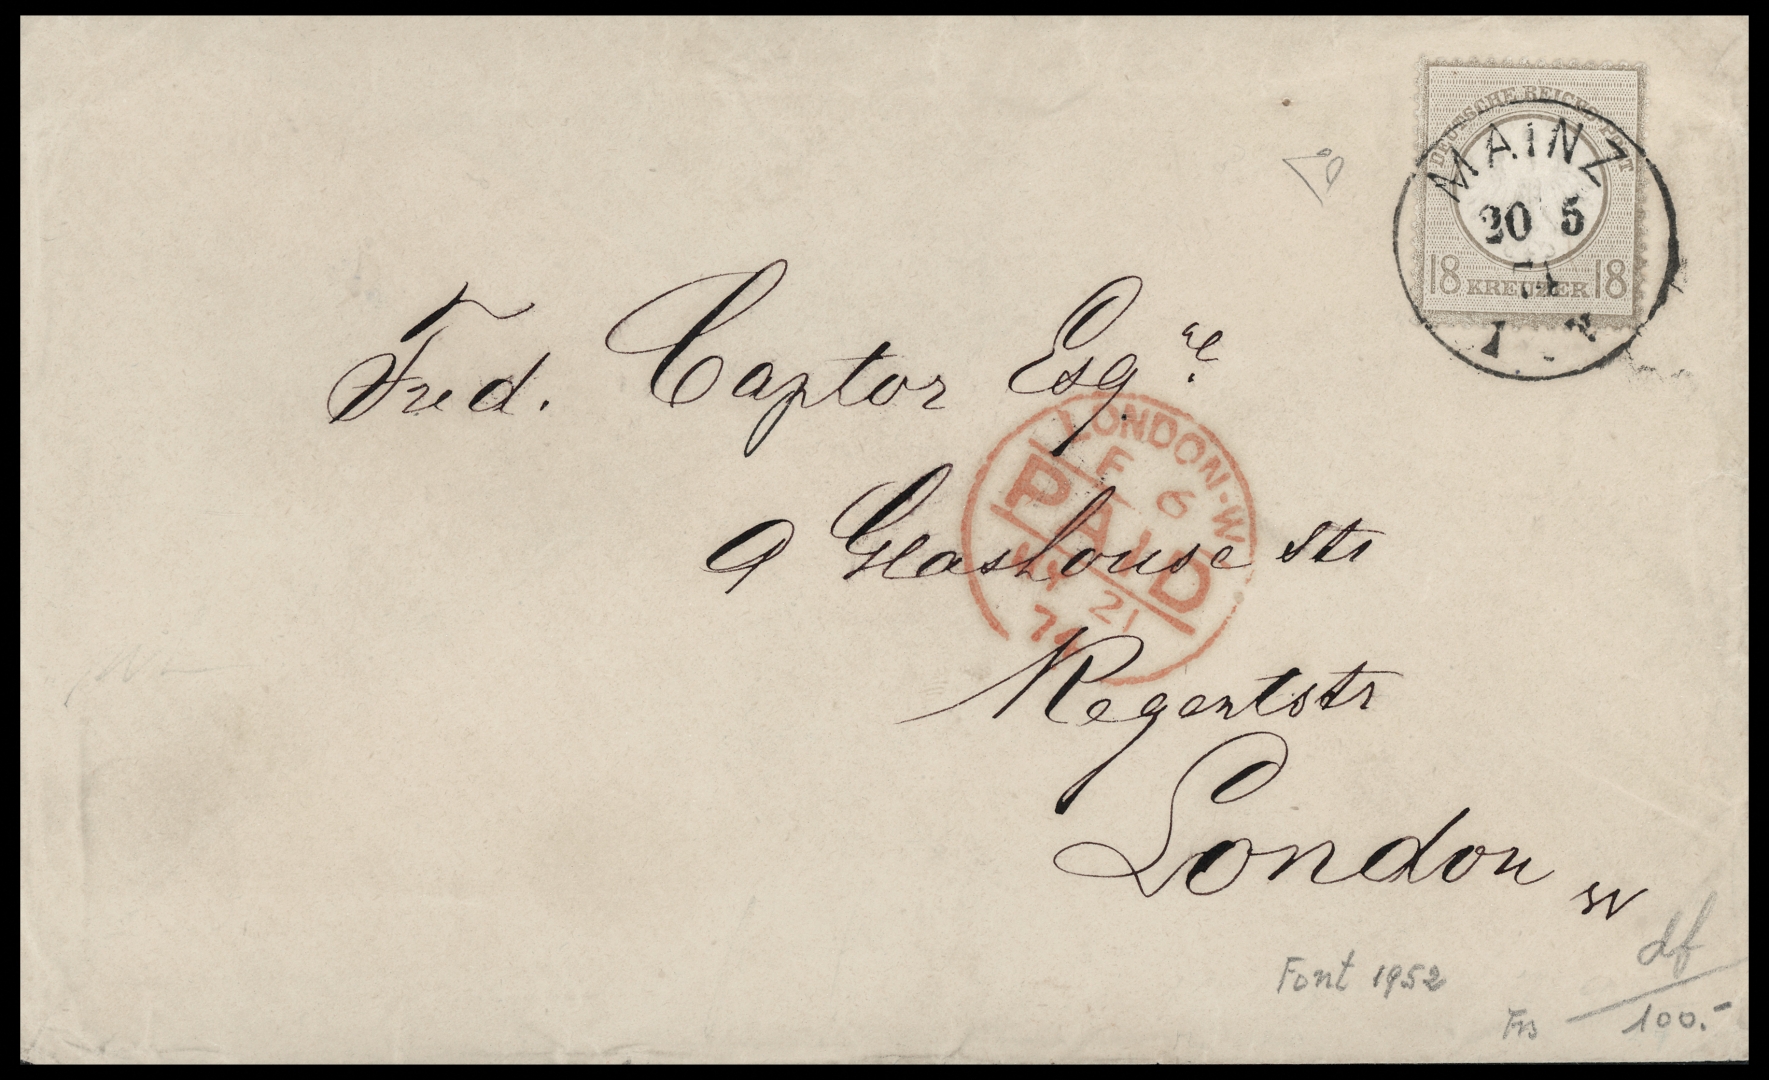 DEUTSCHE REICHS-POST
18 KREUZER 18
MAINZ
20 5
74
Fred. Captor Esqre.
LONDON·W
F 6
PAID
MY 21
74
9 Glashouse Str
Regentstr
London
W
Font 1952
df
Frs 100.-